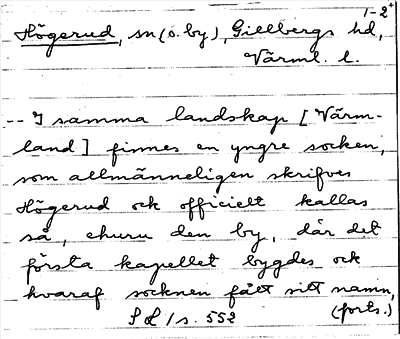 1-2+
Högerud, sn (o. by), Gillbergs hd,
Värml. l.
-- I samma landskap [Värm-
land] finnes en yngre socken,
som allmänneligen skrifves
Högerud och officielt kallas
så, ehuru den by, där det
första kapellet bygdes och
hvaraf socknen fått sitt namn,
SL 1 s. 552 (forts.)